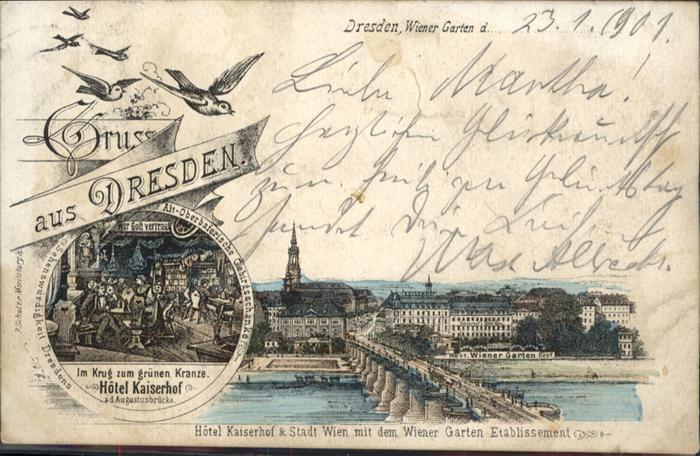 Dresden, Wiener Garten d. 23.1.1901.
Liebe Martha!
Herzlichen Glückwunsch
zum heutigen Geburtstag
sendet Dir Liebe
Max
Gruss
aus DRESDEN.
Wer Gott vertraut
Alt-Oberbaierische Gebirgsschänke
Sehenswürdigkeit Dresdens
Im Krug zum grünen Kranze.
Hôtel Kaiserhof
a.d. Augustusbrücke.
Wiener Garten
Hôtel Kaiserhof & Stadt Wien mit dem Wiener Garten Etablissement